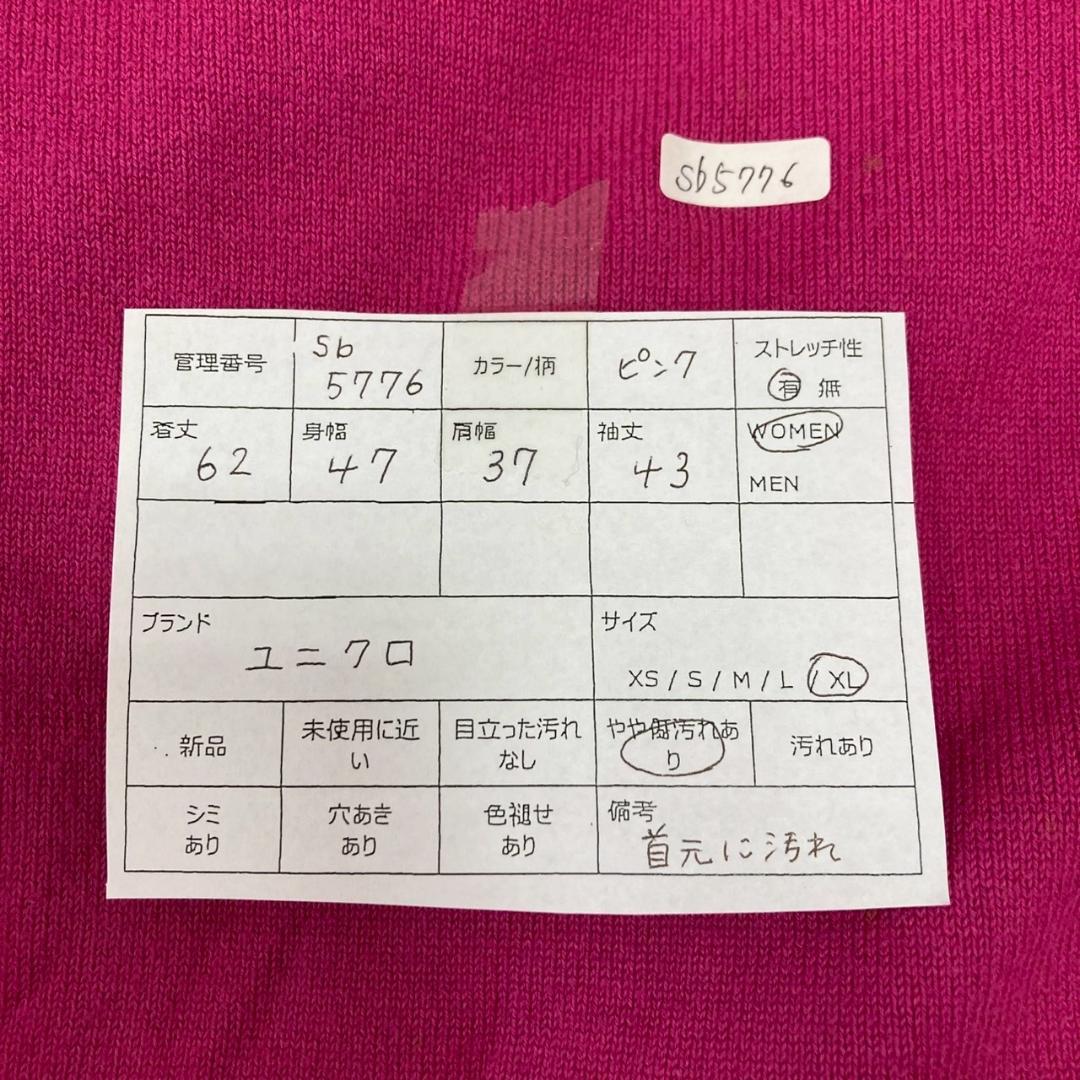 sb5776
管理番号
Sb
5776
カラー/柄
ピンク
ストレッチ性
有 無
着丈
62
身幅
47
肩幅
37
袖丈
43
WOMEN
MEN
ブランド
ユニクロ
サイズ
XS / S / M / L / XL
新品
未使用に近
い
目立った汚れ
なし
やや傷汚れあ
り
汚れあり
シミ
あり
穴あき
あり
色褪せ
あり
備考
首元に汚れ